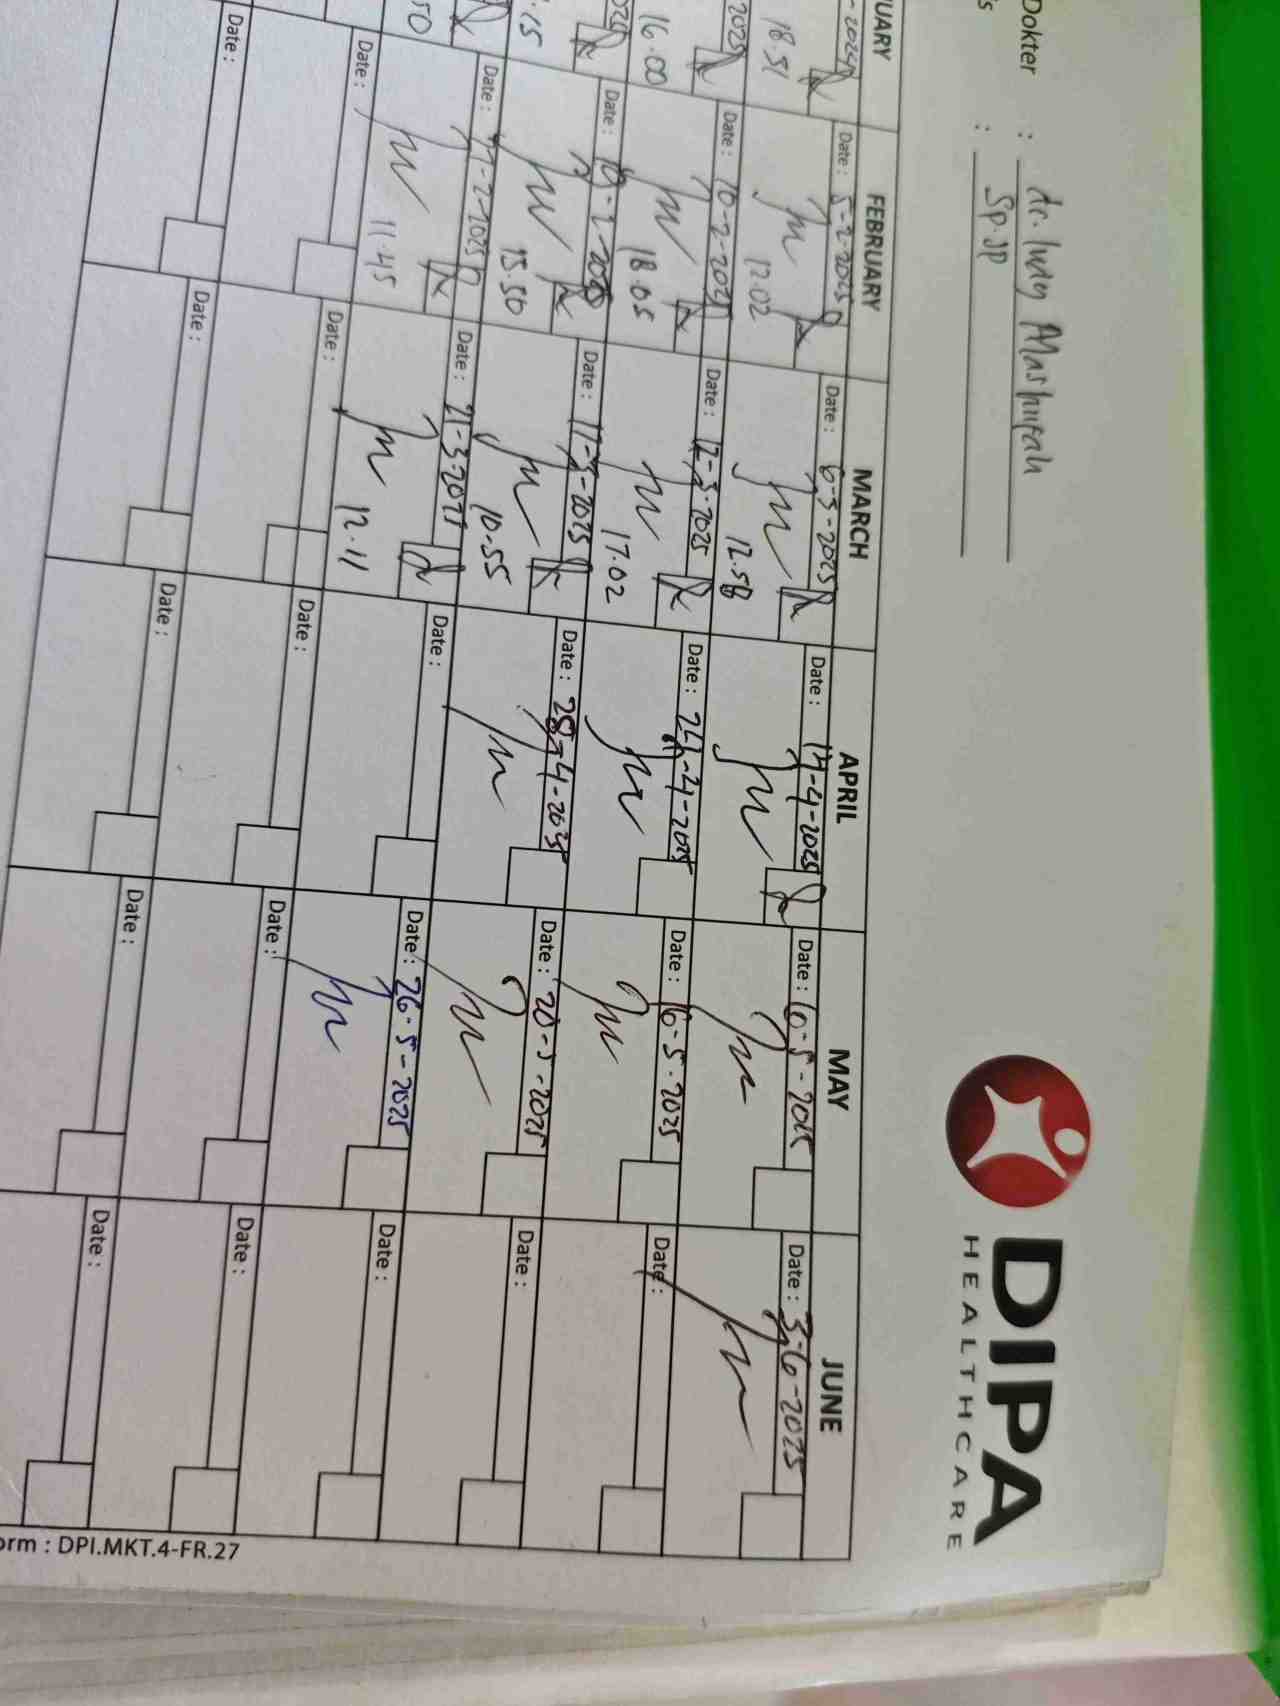 Dokter : dr. Indry Mashfufah
: Sp. JP
DIPA
HEALTHCARE
UARY FEBRUARY MARCH APRIL MAY JUNE
Date : 5-2-2025 Date : 6-3-2025 Date : 14-4-2025 Date : 6-5-2025 Date : 3-6-2025
18.51 12.02 12.58
2025 Date : 10-2-2025 Date : 12-3-2025 Date : 24-4-2025 Date : 16-5-2025 Date :
16.00 18.05 17.02
Date : Date : 17-3-2025 Date : 28-4-2025 Date : 20-5-2025 Date :
.15 15.50 10.55
Date : Date : 21-3-2025 Date : Date : 26-5-2025 Date :
50 11.45 12.11
Date : Date : Date : Date : Date :
Date : Date : Date : Date : Date :
orm : DPI.MKT.4-FR.27